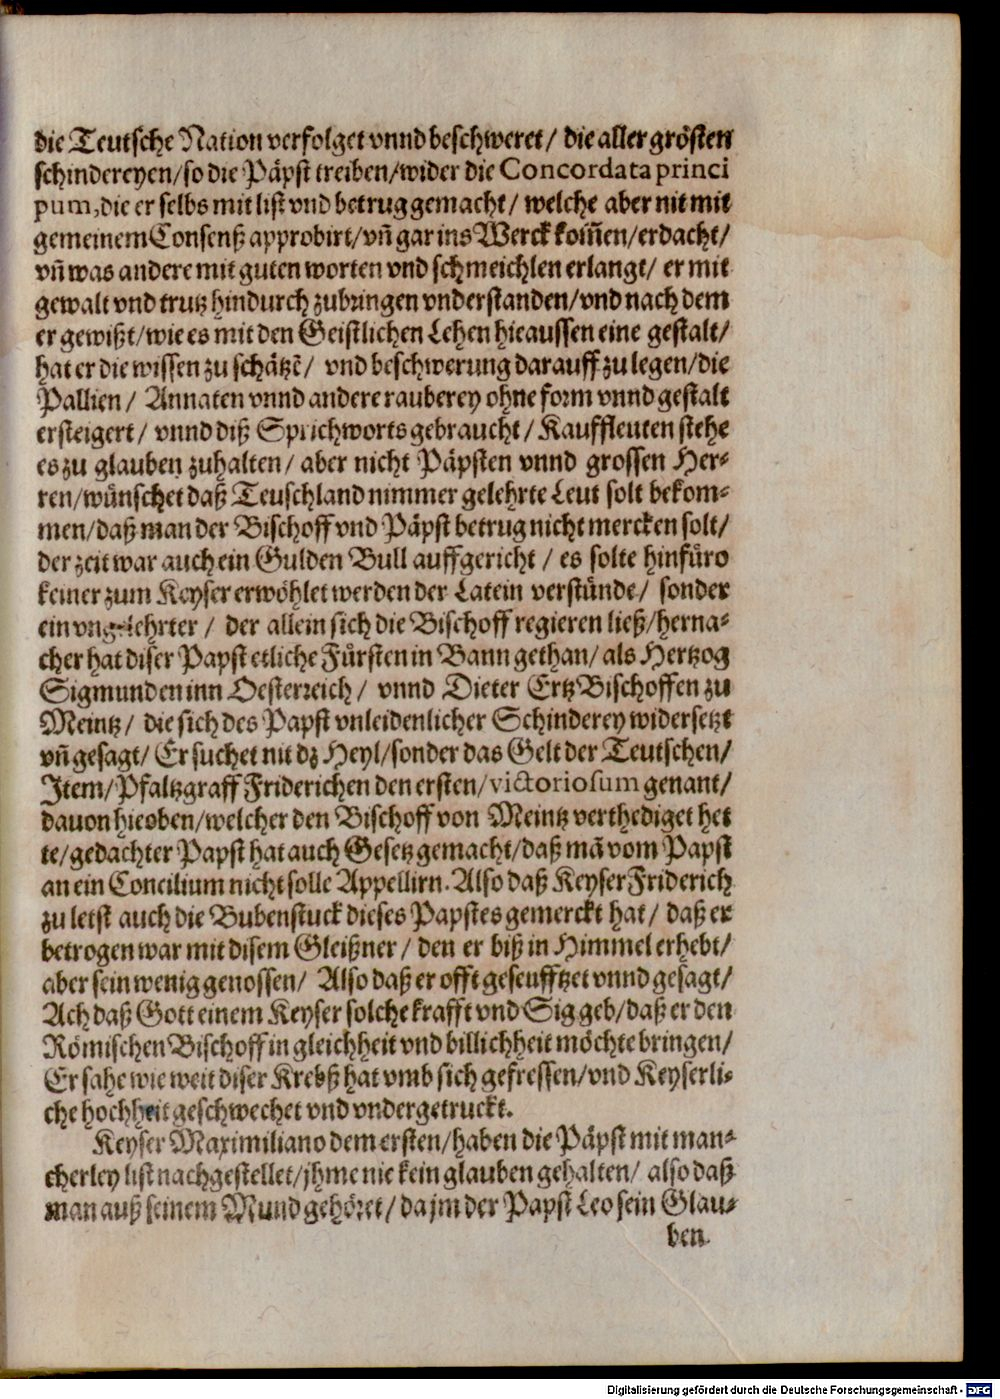 die Teutsche Nation verfolget vnnd beschweret / die aller grösten
schindereyen/so die Päpst treiben/wider die Concordata princi
pum,die er selbs mit list vnd betrug gemacht / welche aber nit mit
gemeinem Consenß approbirt/vñ gar ins Werck kom̃en/erdacht/
vñ was andere mit guten worten vnd schmeichlen erlangt/ er mit
gewalt vnd trutz hindurch zubringen vnderstanden/vnd nach dem
er gewißt/wie es mit den Geistlichen Lehen hieaussen eine gestalt/
hat er die wissen zu schätzẽ/ vnd beschwerung darauff zu legen/die
Pallien / Annaten vnnd andere rauberey ohne form vnnd gestalt
ersteigert / vnnd diß Sprichworts gebraucht / Kauffleuten stehe
es zu glauben zuhalten / aber nicht Päpsten vnnd grossen Her-
ren/wünschet daß Teuschland nimmer gelehrte Leut solt bekom-
men/daß man der Bischoff vnd Päpst betrug nicht mercken solt/
der zeit war auch ein Gulden Bull auffgericht / es solte hinfüro
keiner zum Keyser erwöhlet werden der Latein verstünde/ sonder
ein vngelehrter / der allein sich die Bischoff regieren ließ/herna-
cher hat diser Papst etliche Fürsten in Bann gethan/ als Hertzog
Sigmunden inn Oesterreich / vnnd Dieter ErtzBischoffen zu
Meintz / die sich des Papst vnleidenlicher Schinderey widersetzt
vñ gesagt/ Er suchet nit dz Heyl/sonder das Gelt der Teutschen/
Item/Pfaltzgraff Friderichen den ersten/victoriosum genant/
dauon hieoben/welcher den Bischoff von Meintz verthediget het
te/gedachter Papst hat auch Gesetz gemacht/daß mã vom Papst
an ein Concilium nicht solle Appellirn. Also daß Keyser Friderich
zu letst auch die Bubenstuck dieses Papstes gemerckt hat / daß er
betrogen war mit disem Gleißner / den er biß in Himmel erhebt/
aber sein wenig genossen/ Also daß er offt geseufftzet vnnd gesagt/
Ach daß Gott einem Keyser solche krafft vnd Sig geb/daß er den
Römischen Bischoff in gleichheit vnd billichheit möchte bringen/
Er sahe wie weit diser Krebß hat vmb sich gefressen/vnd Keyserli-
che hochheit geschwechet vnd vndergetruckt.
Keyser Maximiliano dem ersten/haben die Päpst mit man-
cherley list nachgestellet/jhme nie kein glauben gehalten/ also daß
man auß seinem Mund gehöret / da jm der Papst Leo sein Glau-
ben
Digitalisierung gefördert durch die Deutsche Forschungsgemeinschaft - DFG